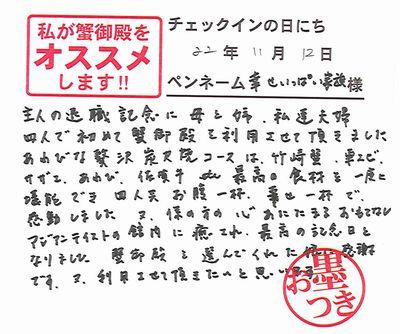 私が蟹御殿を
オススメ
します!!
チェックインの日にち
22年 11月 12日
ペンネーム 幸せいっぱい家族 様
主人の退職記念に母と姉、私達夫婦
四人で初めて蟹御殿を利用させて頂きました
あわびな贅沢炭火焼コースは、竹崎蟹、車エビ、
サザエ、あわび、佐賀牛 最高の食材を一度に
堪能でき四人共お腹一杯、幸せ一杯で、
感動しました 又、係の方の心あたたまるおもてなし
アジアンテイストの館内に癒され、最高の記念日と
なりました 蟹御殿を選んでくれた 感謝
です、又、利用させて頂きたいと思います
お墨つき